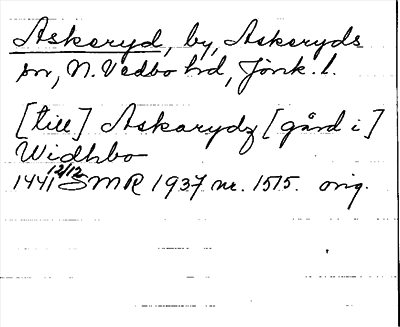 Askeryd, by, Askeryds
sn, N. Vedbo hd, Jönk. l.
[till] Askarydz [gård i]
Widhbo
1441 12/12 SMR 1937 nr. 1515. orig.